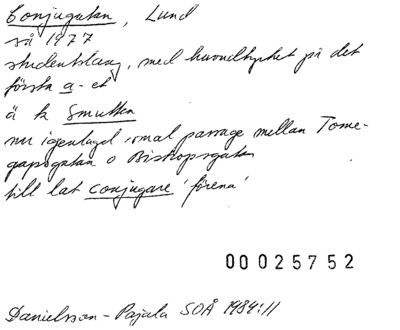 Conjugatan, Lund
så 1977
studentslang, med huvudtrycket på det
första a-et
ä k Smutten
nu igenlagd smal passage mellan Tome-
gapsgatan o Biskopsgatan
till lat conjugare 'förena'
00025752
Danielsson-Pajala SOÅ 1984:11